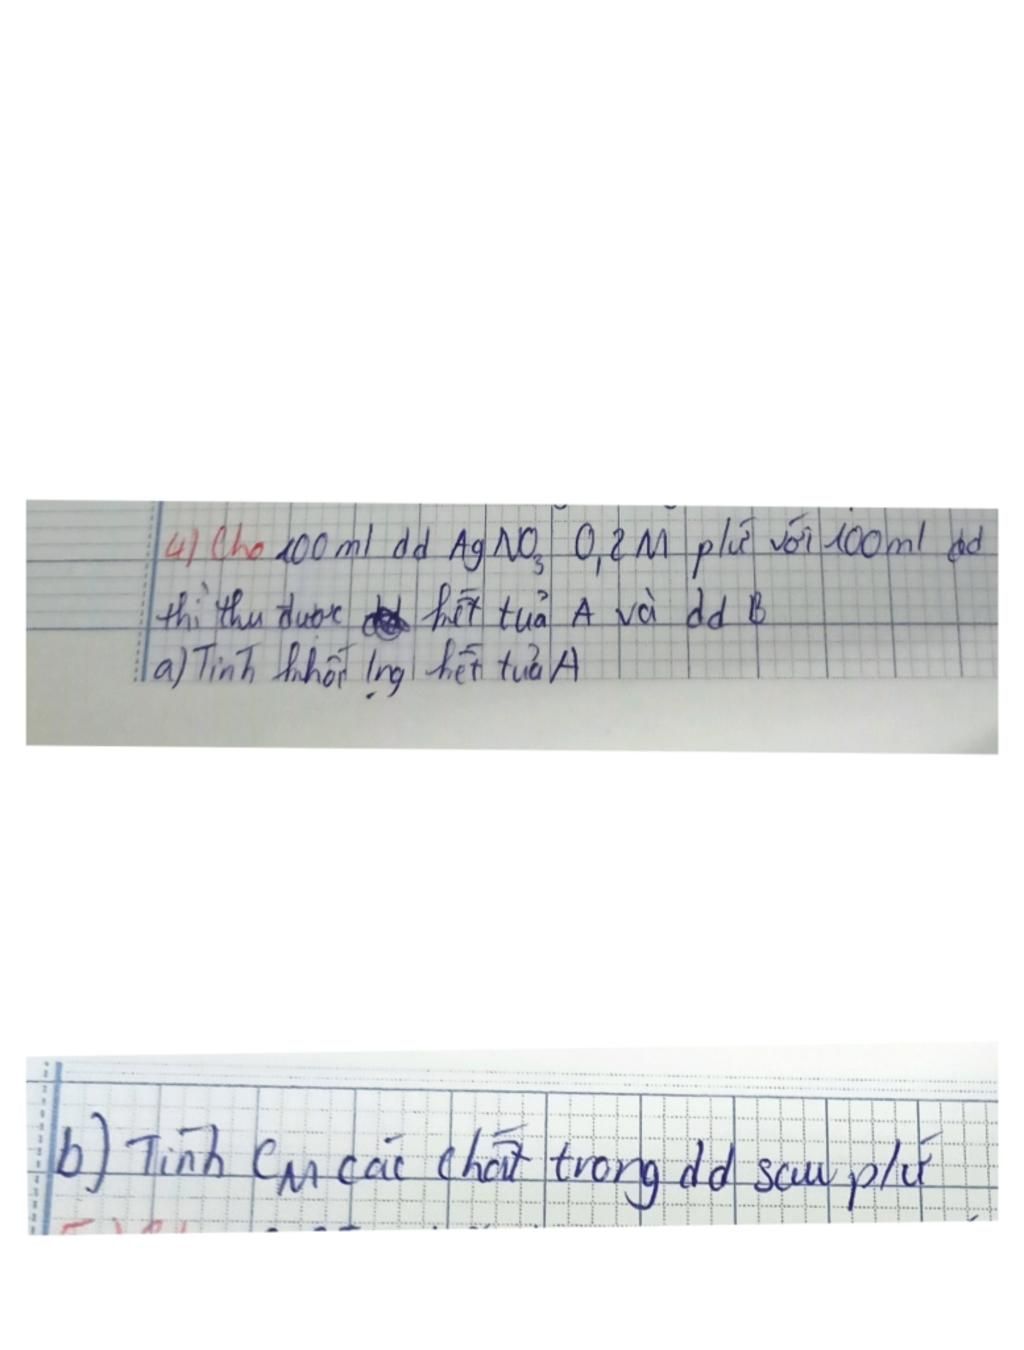 4) Cho 100 ml dd AgNO3 0,2 M p/ứ với 100ml dd
thì thu được kết tuả A và dd B
a) Tính khối lượng kết tuả A
b) Tính CM các chất trong dd sau p/ứ